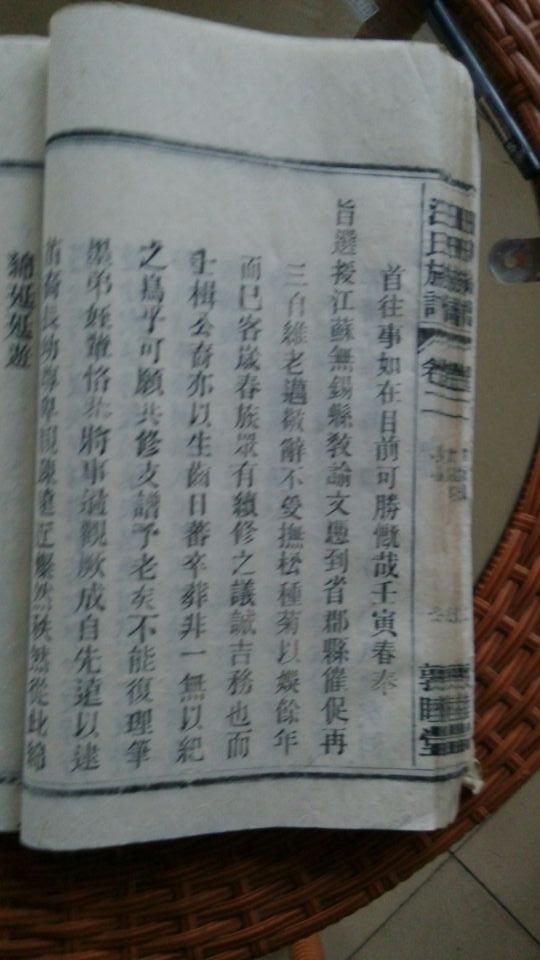 汪氏族譜
卷二
敦睦堂
首往事如在目前可勝慨哉壬寅春奉
旨選授江蘇無錫縣教諭文憑到省郡縣催促再
三自維老邁敬辭不受撫松種菊以娛餘年
而已客歲春族眾有續修之議誠吉務也而
士楫公裔亦以生齒日蕃卒葬非一無以紀
之烏乎可願共修支譜予老矣不能復理筆
墨弟姪輩恪共將事過觀厥成自先遠以逮
苗裔長幼尊卑親疎遠近燦然秩然從此綿
綿延延遊